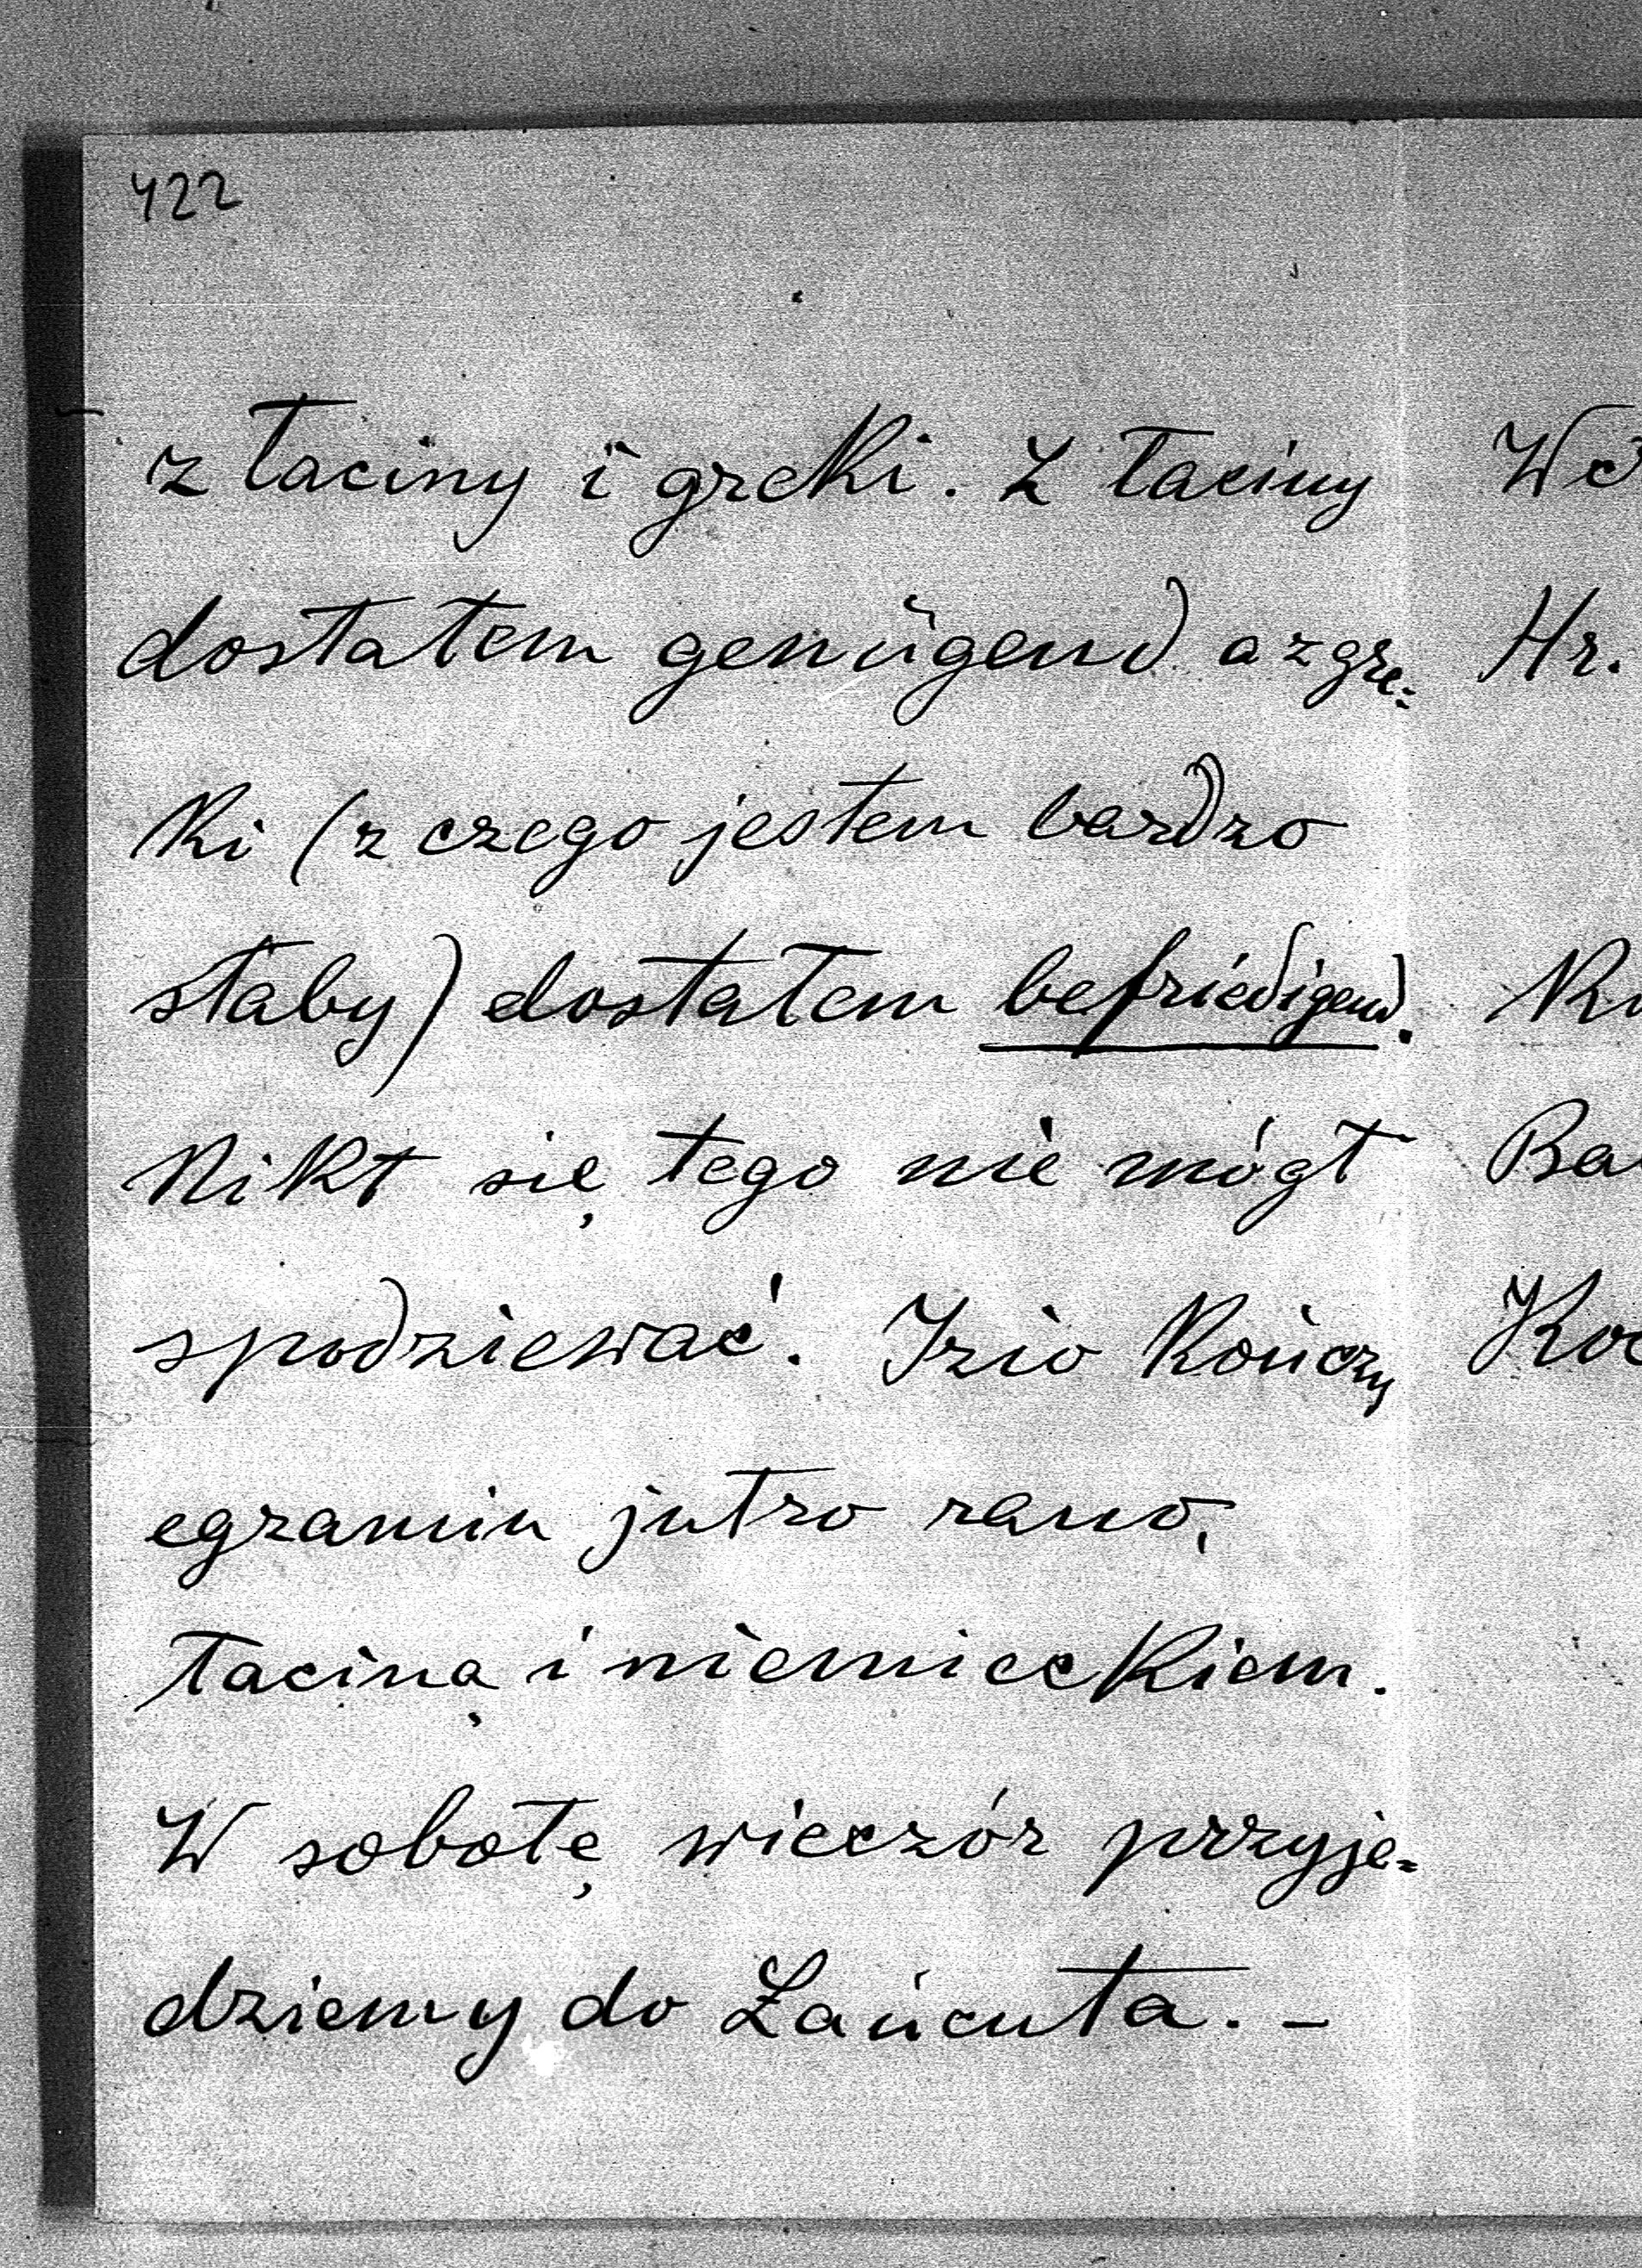 422
z łaciny i greki. Z łaciny
dostałem genügend a z gre=
ki (z czego jestem bardzo
słaby) dostałem befriedigend.
Nikt się tego nie mógł
spodziewać. Izio kończy
egzamin jutro rano,
łaciną i niemieckiem.
W sobotę wieczór przyje=
dziemy do Łańcuta. –
Hr.